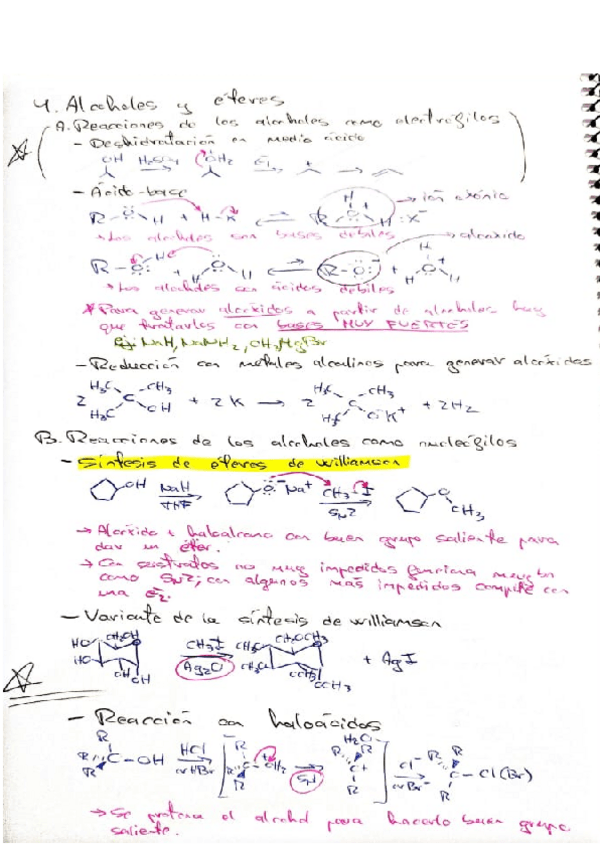 4. Alcoholes y éteres
A. Reacciones de los alcoholes como electrófilos
- Deshidratación en medio ácido
OH H2SO4 OH2 E1
- Ácido-base
R-O-H + H-X ⇌ R-O-H :X⁻ → ion oxonio
→ Los alcoholes son bases débiles → alcóxido
R-O + O ⇌ R-O⁻ + H-O-H
→ Los alcoholes son ácidos débiles
* Para generar alcóxidos a partir de alcoholes hay
que tratarlos con bases MUY FUERTES
Ej: NaH, NaNH2, CH3MgBr
- Reducción con metales alcalinos para generar alcóxidos
2 H3C CH3 H3C C OH + 2K → 2 H3C CH3 H3C C O⁻K⁺ + 2H2
B. Reacciones de los alcoholes como nucleófilos
- Síntesis de éteres de Williamson
OH NaH THF O⁻ Na⁺ CH3-I SN2 O CH3
→ Alcóxido + haloalcano con buen grupo saliente para
dar un éter.
→ Con sustratos no muy impedidos funciona muy bn
como SN2; con algunos más impedidos compite con
una E2.
- Variante de la síntesis de Williamson
HO CH2OH HO OH OH CH3I Ag2O CH3O CH2OCH3 CH3O OCH3 OCH3 + AgI
- Reacción con haloácidos
R R R C-OH HCl or HBr R R R C-OH2 SN H2O R R R C+ Cl⁻ or Br⁻ R R R C-Cl(Br)
→ Se protona el alcohol para hacerlo buen grupo
saliente.